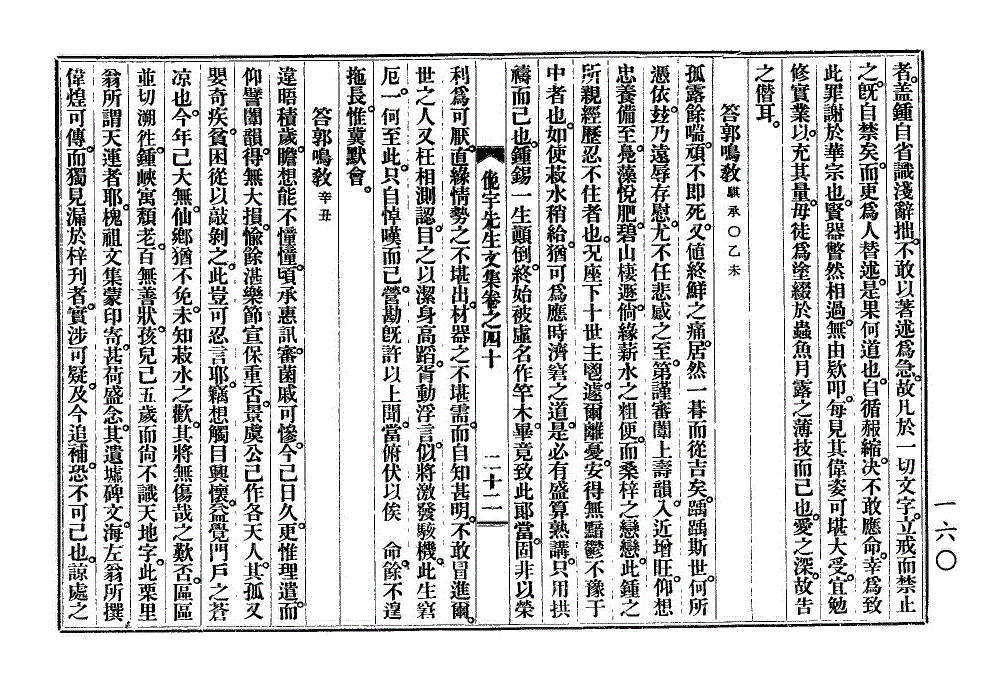 者。蓋鍾自省識淺辭拙。不敢以著述爲急。故凡於一切文字。立戒而禁止
之。旣自禁矣。而更爲人替述。是果何道也。自循赧縮。决不敢應命。幸爲致
此罪謝於華宗也。賢器瞥然相過。無由欵叩。每見其偉姿可堪大受。宜勉
修實業。以充其量。毋徒爲塗綴於蟲魚月露之薄技而已也。愛之深。故告
之僭耳。
答郭鳴敎 騏承○乙未
孤露餘喘。頑不即死。又値終鮮之痛。居然一朞而從吉矣。踽踽斯世。何所
憑依。玆乃遠辱存慰。尤不任悲感之至。第謹審闈上壽韻。入近增旺。仰想
忠養備至。凫藻悅肥。碧山棲遯。倘緣薪水之粗便。而桑梓之戀戀。此鍾之
所親經歷忍不住者也。况座下十世主鬯。遽爾離憂。安得無黯鬱不豫于
中者也。如使菽水稍給。猶可爲應時濟窘之道。是必有盛算熟講。只用拱
禱而已也。鍾錫一生顚倒。終始被虛名作竿木。畢竟致此郞當。固非以榮
俛宇先生文集卷之四十 二十二
利爲可厭。直緣情勢之不堪出。材器之不堪需。而自知甚明。不敢冒進爾。
世之人又枉相測認。目之以潔身高蹈。胥動浮言。似將激發駭機。此生窘
厄。一何至此。只自悼嘆而已。營勘旣許以上聞。當俯伏以俟 命。餘不遑
拖長。惟冀默會。
答郭鳴敎 辛丑
違晤積歲。瞻想能不憧憧。頃承惠訊。審菌戚可慘。今已日久。更惟理遣。而
仰譬闈韻。得無大損。愉餘湛樂。節宣保重否。景虞公已作各天人。其孤又
嬰奇疾。貧困從以敲剝之。此豈可忍言耶。竊想觸目興懷。益覺門戶之蒼
凉也。今年已大無。仙鄕猶不免。未知菽水之歡。其將無傷哉之歎否。區區
並切溯徃。鍾峽寓頹老。百無善狀。孩兒已五歲而尙不識天地字。此栗里
翁所謂天運者耶。槐祖文集蒙印寄。甚荷盛念。其遺墟碑文。海左翁所撰
偉煌可傳。而獨見漏於梓刊者。實涉可疑。及今追補。恐不可已也。諒處之
一六○